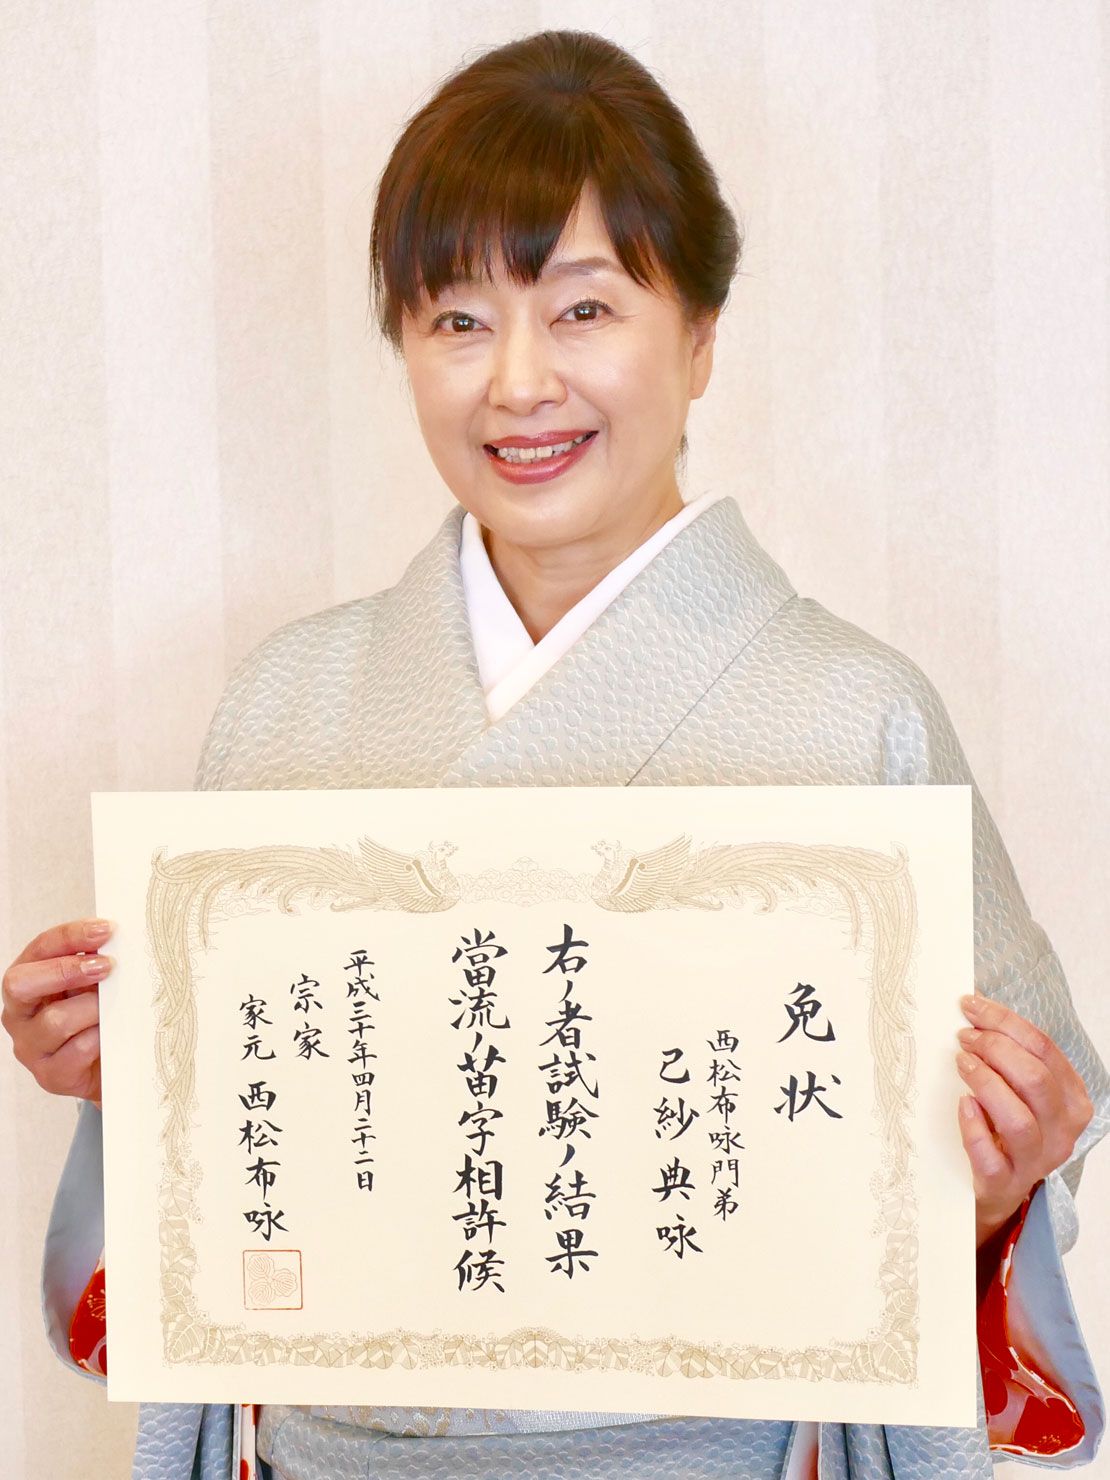 免状
西松布咏門弟
己紗典咏
右ノ者試験ノ結果
當流ノ苗字相許候
平成三十年四月二十二日
宗家
家元 西松布咏